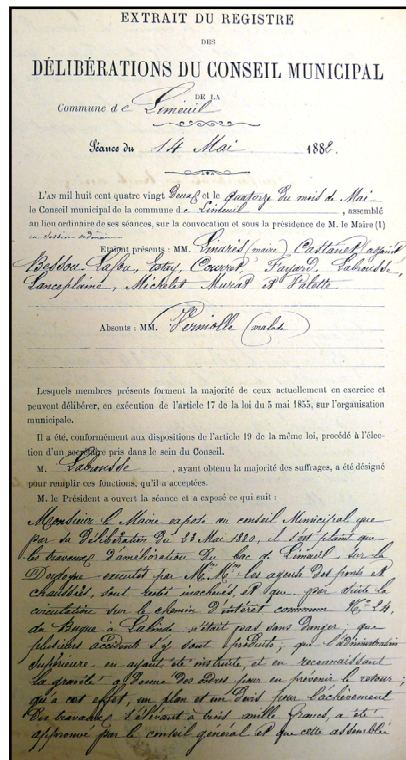 EXTRAIT DU REGISTRE
DES
DÉLIBÉRATIONS DU CONSEIL MUNICIPAL
DE LA
Commune de Limeuil
Séance du 14 Mai 1882
L'AN mil huit cent quatre vingt Deux et le quatorze du mois de Mai
le Conseil municipal de la commune de Limeuil, assemblé
au lieu ordinaire de ses séances, sur la convocation et sous la présidence de M. le Maire (1)
en session
Etaient présents : MM. Linarès (maire) Castanet adjoint
Bessou, Lafon, Estay, Couvrat, Fayard, Labrousse,
Lanceplaine, Michelet Murat et Valette
Absents : MM. Verniolle (malade)
Lesquels membres présents forment la majorité de ceux actuellement en exercice et
peuvent délibérer, en exécution de l'article 17 de la loi du 5 mai 1855, sur l'organisation
municipale.
Il a été, conformément aux dispositions de l'article 19 de la même loi, procédé à l'élec-
tion d'un secrétaire pris dans le sein du Conseil.
M. Labrousse, ayant obtenu la majorité des suffrages, a été désigné
pour remplir ces fonctions, qu'il a acceptées.
M. le Président a ouvert la séance et a exposé ce qui suit :
Monsieur le Maire expose au conseil Municipal que
par sa délibération du 23 Mai 1880, il s'est plaint que
les travaux d'amélioration du bac de Limeuil, sur la
Dordogne executés par M.rs M.rs les agents des ponts et
chaussées, sont restés inachevés, et que par suite la
circulation sur le chemin d'intérêt commun N.o 24,
de Bugue à Lalinde n'était pas sans danger; que
plusieurs accidents s'y sont produits; que l'administration
supérieure en ayant été instruite, et en reconnaissant
la gravité a donné des ordres pour en prévenir le retour;
qu'à cet effet, un plan et un devis pour l'achèvement
des travaux s'élevant à trois mille francs, a été
approuvé par le conseil général et que cette assemblée